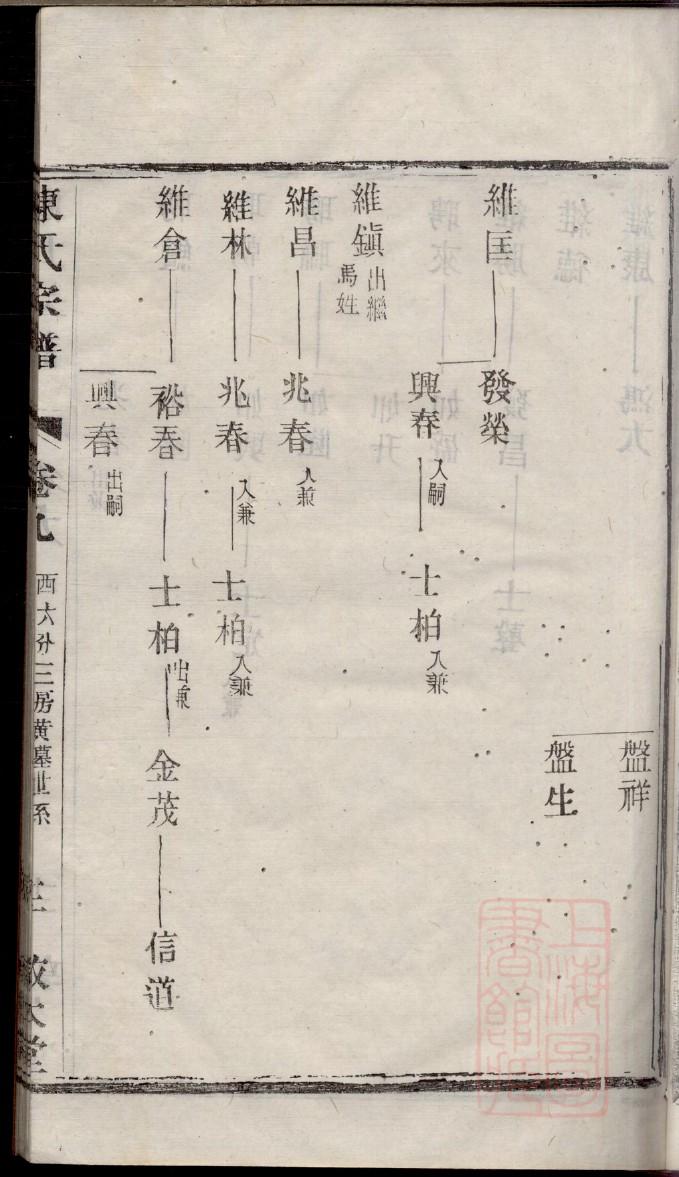 盤祥
盤生
維匡
發榮
興春 入嗣
士柏 入兼
維鎭 出繼馬姓
維昌
兆春 入兼
維林
兆春 入兼
士柏 入兼
維倉
裕春
士柏 出兼
金茂
信道
興春 出嗣
陳氏宗譜
卷九
西六分三房黄墓世系
敬本堂
上海圖書館藏